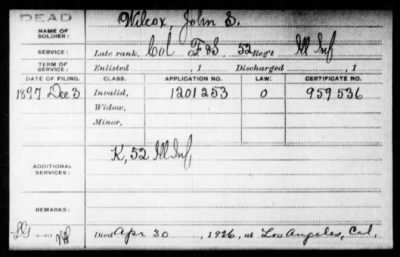 DEAD
NAME OF SOLDIER: Wilcox, John S.
SERVICE: Late rank, Col F&S 52 Reg't Ill Inf
TERM OF SERVICE: Enlisted , 1 Discharged , 1
DATE OF FILING. CLASS. APPLICATION NO. LAW. CERTIFICATE NO.
1897 Dec 3 Invalid, 1201253 O 959536
Widow,
Minor,
ADDITIONAL SERVICES: K, 52 Ill Inf,
REMARKS:
Died Apr 30 , 1926, at Los Angeles, Cal.